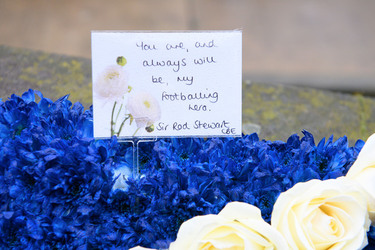 You are, and
always will
be, my
footballing
hero.
Sir Rod Stewart
CBE